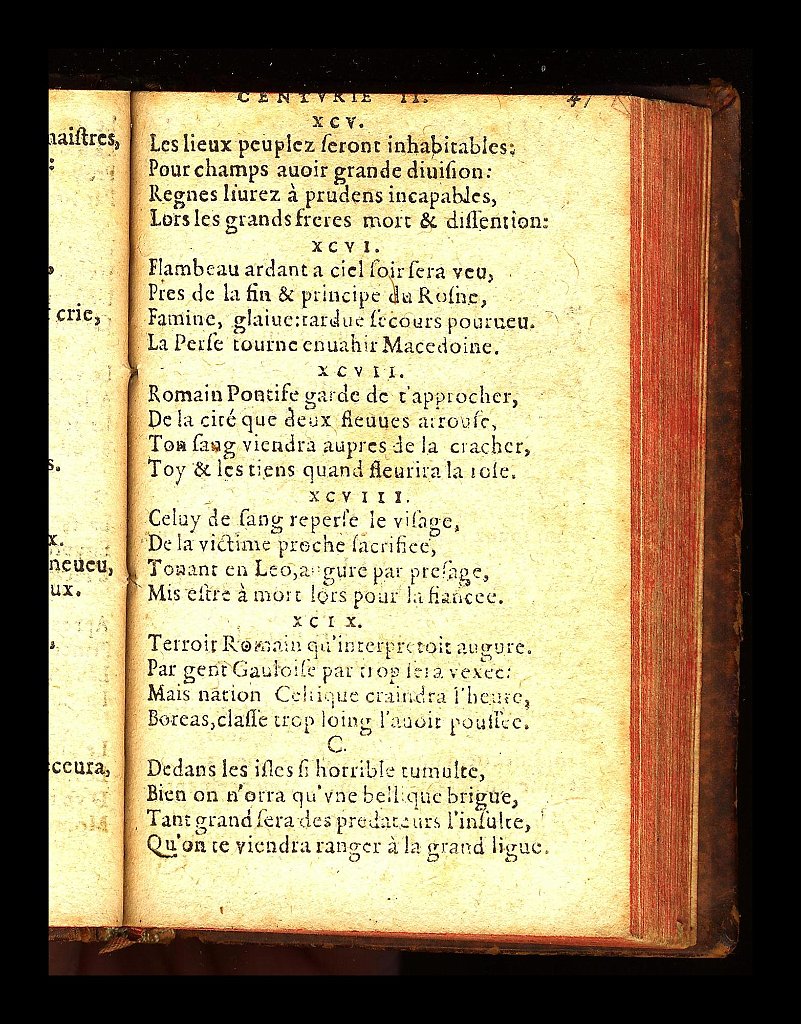 aiſtres,
:
crie,
s.
x.
neueu,
ux.
,
ceura,
CENTVRIE II. 47
XCV.
Les lieux peuplez ſeront inhabitables:
Pour champs auoir grande diuiſion:
Regnes liurez à prudens incapables,
Lors les grands freres mort & diſſention:
XCVI.
Flambeau ardant a ciel ſoir ſera veu,
Pres de la fin & principe du Roſne,
Famine, glaiue: tardue ſecours pourueu.
La Perſe tourne enuahir Macedoine.
XCVII.
Romain Pontife garde de t'approcher,
De la cité que deux fleuues arrouſe,
Ton ſang viendra aupres de la cracher,
Toy & les tiens quand fleurira la roſe.
XCVIII.
Celuy de ſang reperſe le viſage,
De la victime proche ſacrifiee,
Tonant en Leo, augure par preſage,
Mis eſtre à mort lors pour la fiancee.
XCIX.
Terroir Romain qu'interpretoit augure.
Par gent Gauloiſe par trop ſera vexee:
Mais nation Celtique craindra l'heure,
Boreas, claſſe trop loing l'auoit pouſſee.
C.
Dedans les iſles ſi horrible tumulte,
Bien on n'orra qu'vne bellique brigue,
Tant grand ſera des predateurs l'inſulte,
Qu'on te viendra ranger à la grand ligue.